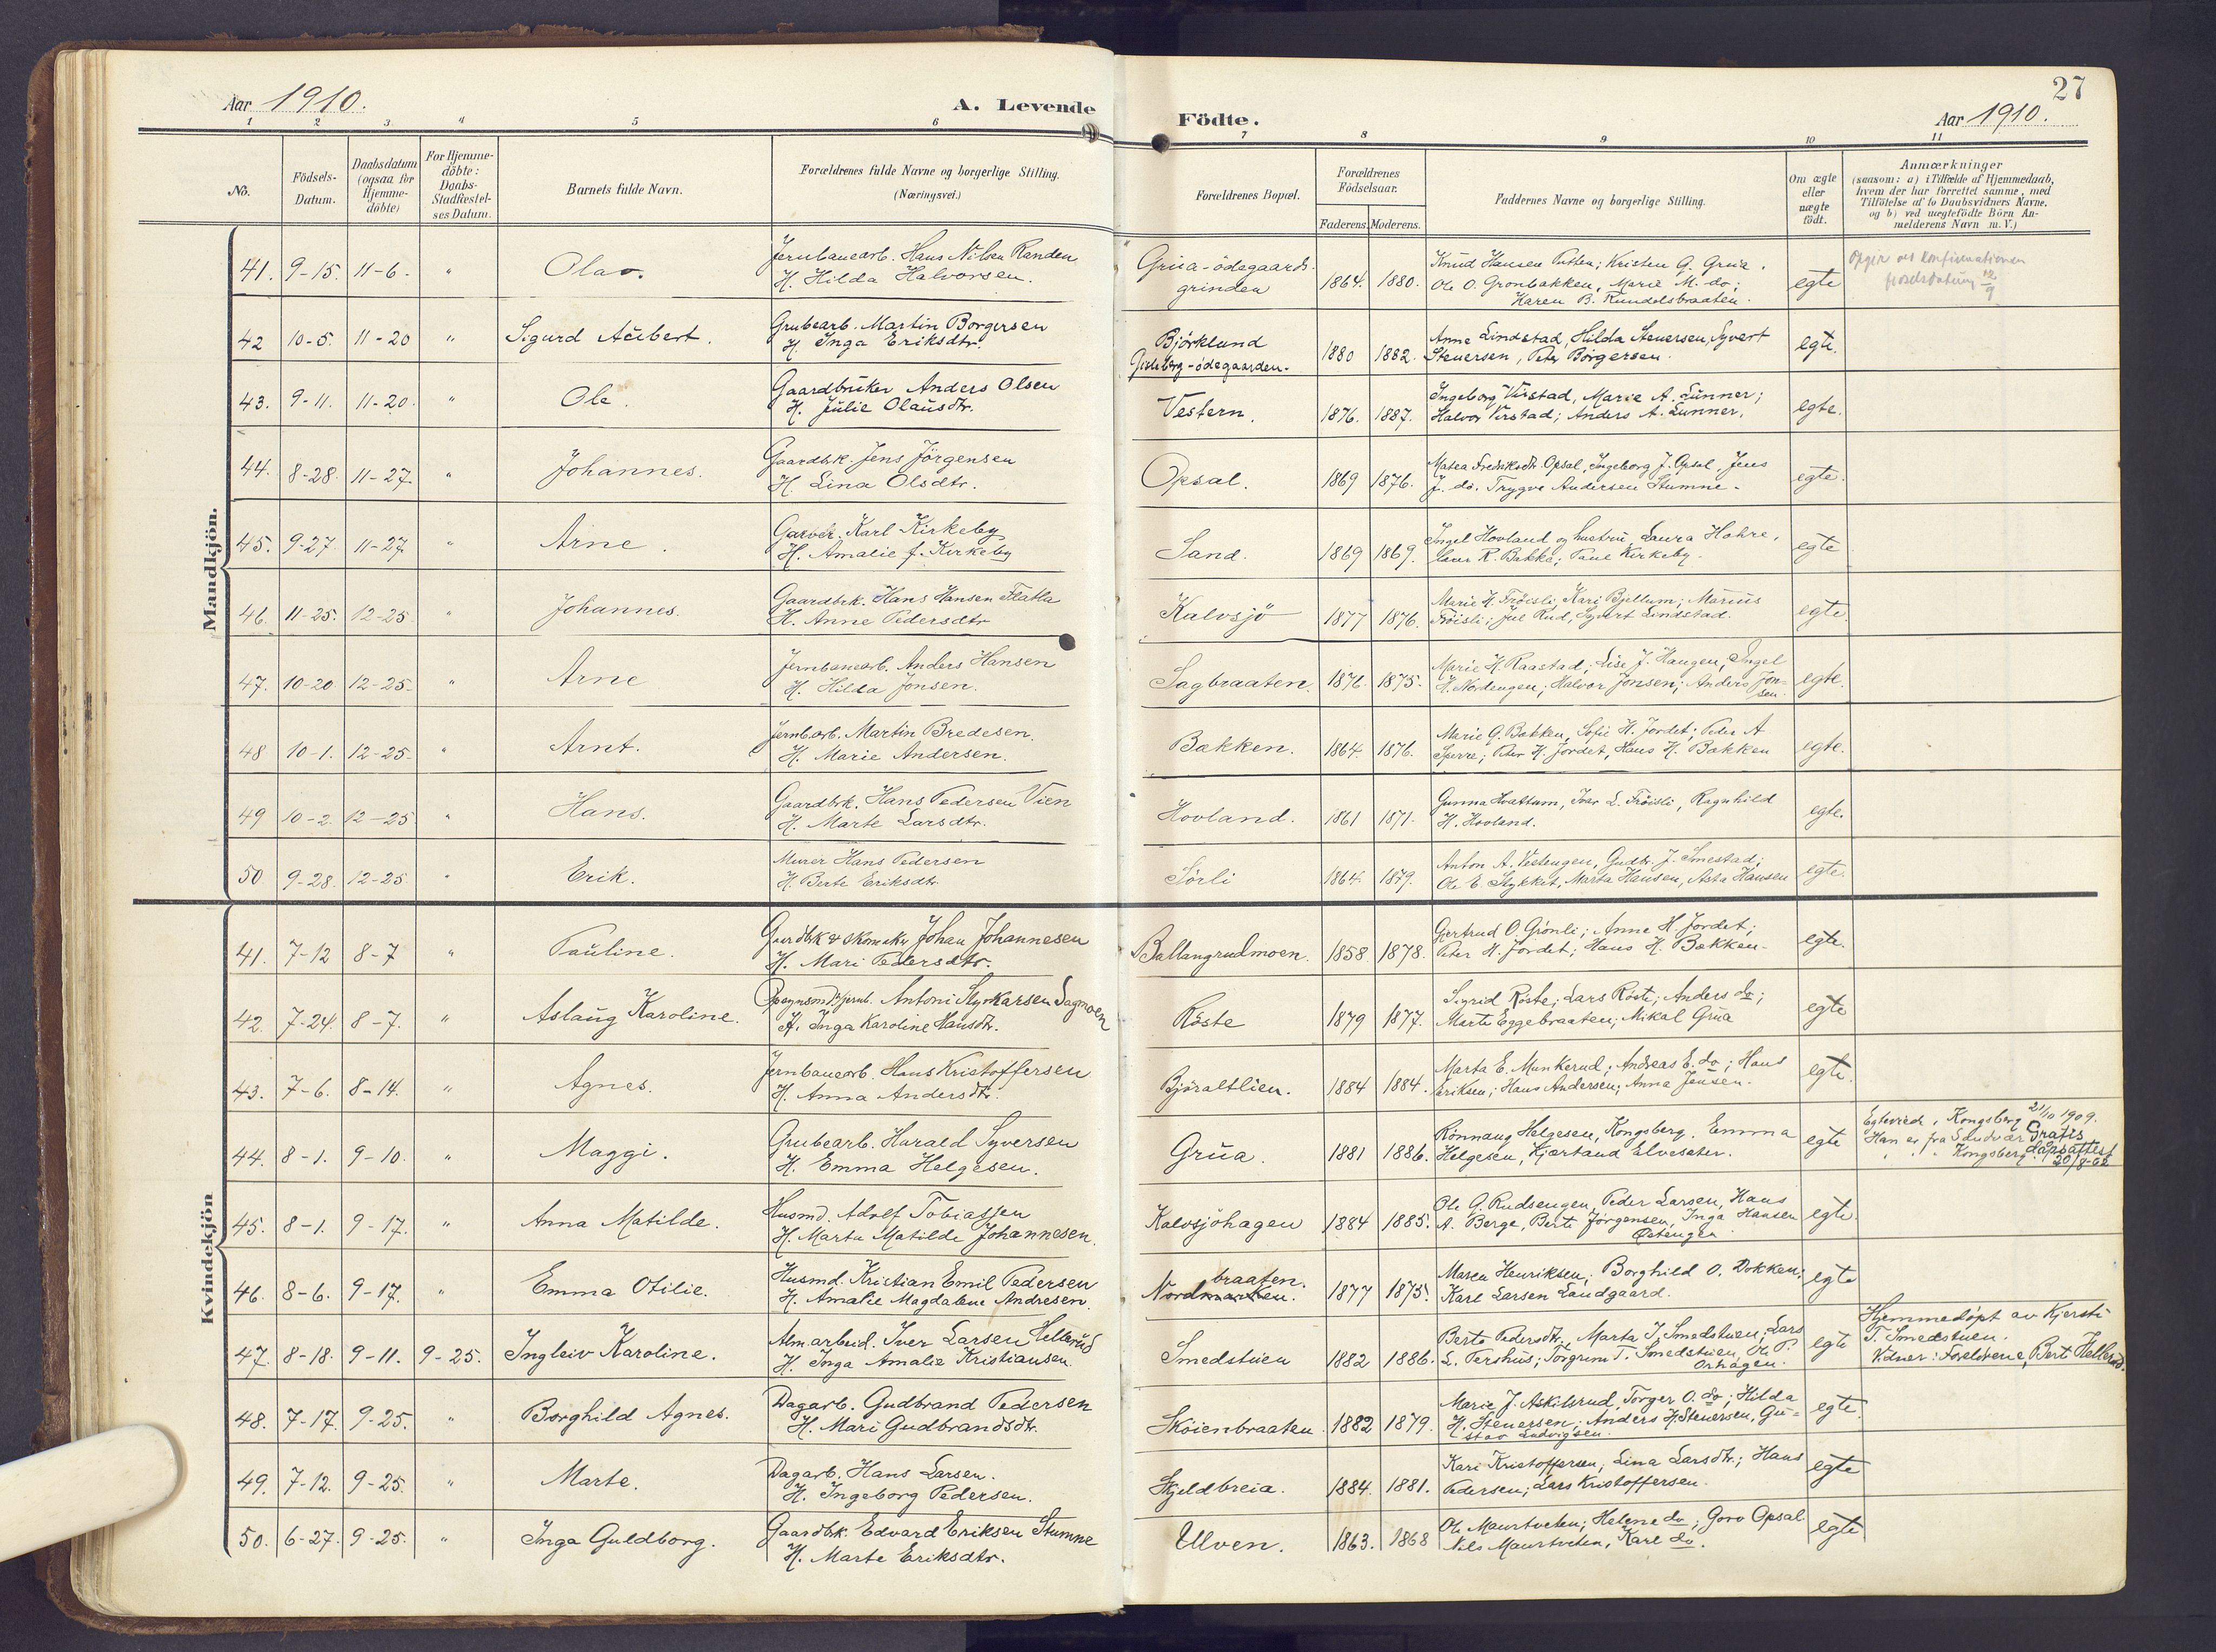 27
Aar 1910.
A. Levende Födte.
Aar 1910.
1 2 3 4 5 6 7 8 9 10 11
No.
Födsels-Datum.
Daabsdatum (ogsaa for Hjemme-döbte)
For Hjemme-döbte: Daabs-Stadfæstel-ses Datum.
Barnets fulde Navn.
Forældrenes fulde Navne og borgerlige Stilling.
(Næringsvei.)
Forældrenes Bopæl.
Forældrenes Födselsaar.
Faderens. Moderens.
Faddernes Navne og borgerlige Stilling.
Om ægte eller uægte födt.
Anmærkninger
(saasom: a) i Tilfælde af Hjemmedaab,
hvem der har forrettet samme, med
Tilföielse af to Daabsvidners Navne.
og b) ved uægtefödte Börn An-
melderens Navn m. V.)
Mandkjön.
41. 9-15. 11-6. " Olav. Jernbanearb. Hans Nilsen Randen
H. Hilda Halvorsen.
Grua-ödegaards-
grinden 1864. 1880.
Knud Hansen Putten; Kristen G. Grua.
Ole O. Grönbakken, Marie M. do;
Karen B. Rundelsbraaten.
egte
Opgir ved konfirmationen
fødselsdatum 12/9
42 10-5. 11-20 " Sigurd Aubert. Grubearb. Martin Borgersen
H. Inga Eriksdtr.
Björklund
Grindberg-ödegaarden. 1880 1882.
Anne Lindstad, Hilda Stenersen, Syvert
Stenersen, Peter Börgersen.
egte.
43. 9-11. 11-20. " Ole. Gaardbruker Anders Olsen
H. Julie Olausdtr.
Vestern. 1876. 1887.
Ingeborg Virstad, Marie A. Lunner;
Halvor Virstad; Anders A. Lunner.
egte.
44. 8-28. 11-27. " Johannes. Gaardbk. Jens Jörgensen
H. Lina Olsdtr.
Opsal. 1869 1876.
Matea Fredriksdtr. Opsal, Ingeborg J. Opsal, Jens
J. do. Trygve Andersen Stumne.
egte.
45. 9-27. 11-27. " Arne. Garver. Karl Kirkeby
H. Amalie J. Kirkeby
Sand. 1869 1869.
Ingel Hovland og hustru, Laura Hahre,
R. Bakke; Paul Kirkeby.
egte
46. 11-25. 12-25 " Johannes. Gaardbrk. Hans Hansen Flatla
H. Anne Pedersdtr
Kalvsjö 1877 1876.
Marie H. Fröisli, Kari Bjellum; Marius
Fröisli; Juel Rud, Syvert Lindstad.
egte.
47. 10-20 12-25. " Arne Jernbanearb. Anders Hansen
H. Hilda Jonsen.
Sagbraaten. 1876. 1875.
Marie H. Raastad; Lise J. Haugen, Ingel
H. Nordengen; Halvor Jonsen; Anders Jon-
sen.
egte.
48 10-1. 12-25. " Arnt. Jernb.arb. Martin Bredesen.
H. Marie Andersen.
Bækken. 1864. 1876.
Marie G. Bakken, Sofie H. Jordet; Peder A
Sparre; Peter H. Jordet, Hans H. Bækken
egte.
49 10-2. 12-25 " Hans. Gaardbrk. Hans Pedersen Vien
H. Marte Larsdtr.
Hovland. 1861 1871.
Gunna Hvattum, Ivar L. Fröisli, Ragnhild
H. Hovland.
egte.
50 9-28. 12-25 " Erik. Murer Hans Pedersen
H. Berte Eriksdtr.
Sörli 1864. 1879.
Anton A. Vestengen, Gudbr. J. Smestad;
Ole E Stykket, Marta Hansen, Asta Hansen
egte.
Kvindekjön
41. 7-12 8-7 " Pauline. Gaardbk & skomaker Johan Johannesen
H. Mari Pedersdtr.
Ballangrudmoen. 1858. 1878.
Gjertrud O. Grönli; Anne H. Jordet;
Peter H. Jordet; Hans H. Bækken.
egte.
42. 7-24. 8-7. " Aslaug Karoline. Antoni Styrkarsen Sagmoen
H. Inga Karoline Hansdtr.
Röste 1879 1877.
Sigrid Röste; Lars Röste; Anders do;
Marte Eggebraaten; Mikal Grua
egte
43. 7-6. 8-14. " Agnes. Jernbanearb. Hans Kristoffersen
H. Anna Andersdtr.
Björaltlien. 1884 1884.
Marta E. Munkerud; Andreas E. do; Hans
Eriksen; Hans Andersen; Anna Jensen.
egte.
44. 8-1. 9-10. " Maggi. Grubearb. Harald Syversen
H. Emma Helgesen.
Grua. 1881 1886.
Rönnaug Helgesen, Kongsberg. Emma
Helgesen, Kjartand Elvesæter.
egte
Egteviede, Kongsberg 21/10 1909.
Han er fra Gratis
" " " Kongsberg. dåpsattest
20/8-62
45. 8-1. 9-17. " Anna Matilde. Husmd. Adolf Tobiassen
H. Marta Matilde Johannesen.
Kalvsjöhagen 1884 1885.
Ole G. Rudsengen, Peder Larsen, Hans
A. Berge, Berte Jörgensen, Inga Hansen
Østengen
egte.
46. 8-6. 9-17. " Emma Otilie. Husmd. Kristian Emil Pedersen
H. Amalie Magdalene Andresen.
braaten.
Nordmarken. 1877 1875.
Maren Henriksen; Borghild O. Dokken;
Karl Larsen Landgaard.
egte
47. 8-18. 9-11. 9-25. Ingleiv Karoline. Alm.arbeid. Iver Larsen Hellerud
H. Inga Amalie Kristiansen.
Smedstuen 1882 1886.
Berte Pedersdtr., Marta J. Smedstuen; Lars
L. Tershus; Torgrim T. Smedstuen, Ole P.
Orhagen.
egte
Hjemmedöpt av Kjersti
T. Smedstuen.
Vidner: Forældrene, Berte Hellerud.
48. 7-17. 9-25. " Borghild Agnes. Dagarb. Gudbrand Pedersen
H. Mari Gudbrandsdtr.
Sköienbraaten. 1882 1879.
Marie J. Askilsrud, Torger O. do; Hilda
H. Stenersen; Anders H. Stenersen, Gu-
stav Ludvigsen.
egte.
49. 7-12. 9-25. " Marte. Dagarb. Hans Larsen.
H. Ingeborg Pedersen.
Skjeldbreia. 1884. 1881.
Kari Kristoffersen; Lina Larsdtr.; Hans
Pedersen; Lars Kristoffersen.
egte
50. 6-27. 9-25. " Inga Guldborg. Gaardbk. Edvard Eriksen Stumne
H. Marte Eriksdtr.
Ulven. 1863. 1868
Ole Maurtveten; Helene do; Goro Opsal
Nils Maurtveten, Karl do.
egte